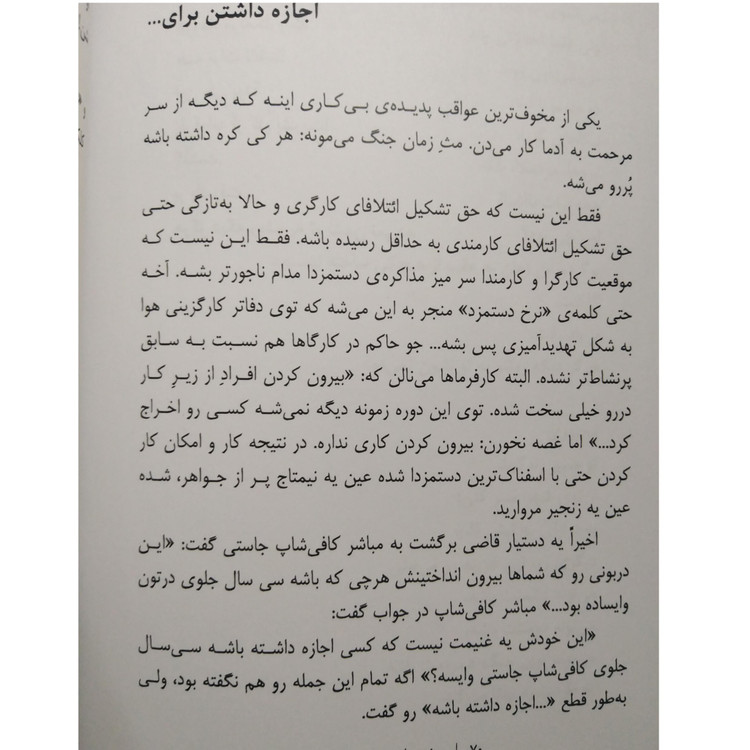 اجازه داشتن برای...
یکی از مخوف‌ترین عواقب پدیده‌ی بی‌کاری اینه که دیگه از سر
مرحمت به آدما کار می‌دن. مثِ زمان جنگ می‌مونه: هر کی کره داشته باشه
پُررو می‌شه.
فقط این نیست که حق تشکیل ائتلافای کارگری و حالا به‌تازگی حتی
حق تشکیل ائتلافای کارمندی به حداقل رسیده باشه. فقط این نیست که
موقعیت کارگرا و کارمندا سر میز مذاکره‌ی دستمزدا مدام ناجورتر بشه. آخه
حتی کلمه‌ی «نرخ دستمزد» منجر به این می‌شه که توی دفاتر کارگزینی هوا
به شکل تهدیدآمیزی پس بشه... جو حاکم در کارگاها هم نسبت به سابق
پرنشاط‌تر نشده. البته کارفرماها می‌نالن که: «بیرون کردن افرادِ از زیرِ کار
دررو خیلی سخت شده. توی این دوره زمونه دیگه نمی‌شه کسی رو اخراج
کرد...» اما غصه نخورن: بیرون کردن کاری نداره. در نتیجه کار و امکان کار
کردن حتی با اسفناک‌ترین دستمزدا شده عین یه نیمتاج پر از جواهر، شده
عین یه زنجیر مروارید.
اخیراً یه دستیار قاضی برگشت به مباشر کافی‌شاپ جاستی گفت: «این
دربونی رو که شماها بیرون انداختینش هرچی که باشه سی سال جلوی درتون
وایساده بود...» مباشر کافی‌شاپ در جواب گفت:
«این خودش یه غنیمت نیست که کسی اجازه داشته باشه سی‌سال
جلوی کافی‌شاپ جاستی وایسه؟» اگه تمام این جمله رو هم نگفته بود، ولی
به‌طور قطع «...اجازه داشته باشه» رو گفت.